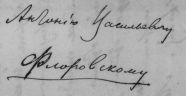 Антонію Васильевичу
Флоровскому